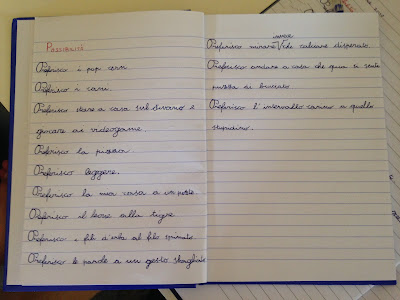 POSSIBILITÀ
Preferisco i pop corn.
Preferisco i cani.
Preferisco stare a casa sul divano e
giocare ai videogame.
Preferisco la pizza
Preferisco leggere.
Preferisco la mia corsa a un
Preferisco il leone alla tigre
Preferisco i fili d'erba al filo spinato.
Preferisco le parole a un gesto sbagliato
invece
Preferisco calciare disperato.
Preferisco andare a casa che qua si sente
puzza di bruciato.
Preferisco l'intervallo a quello
stupidino.